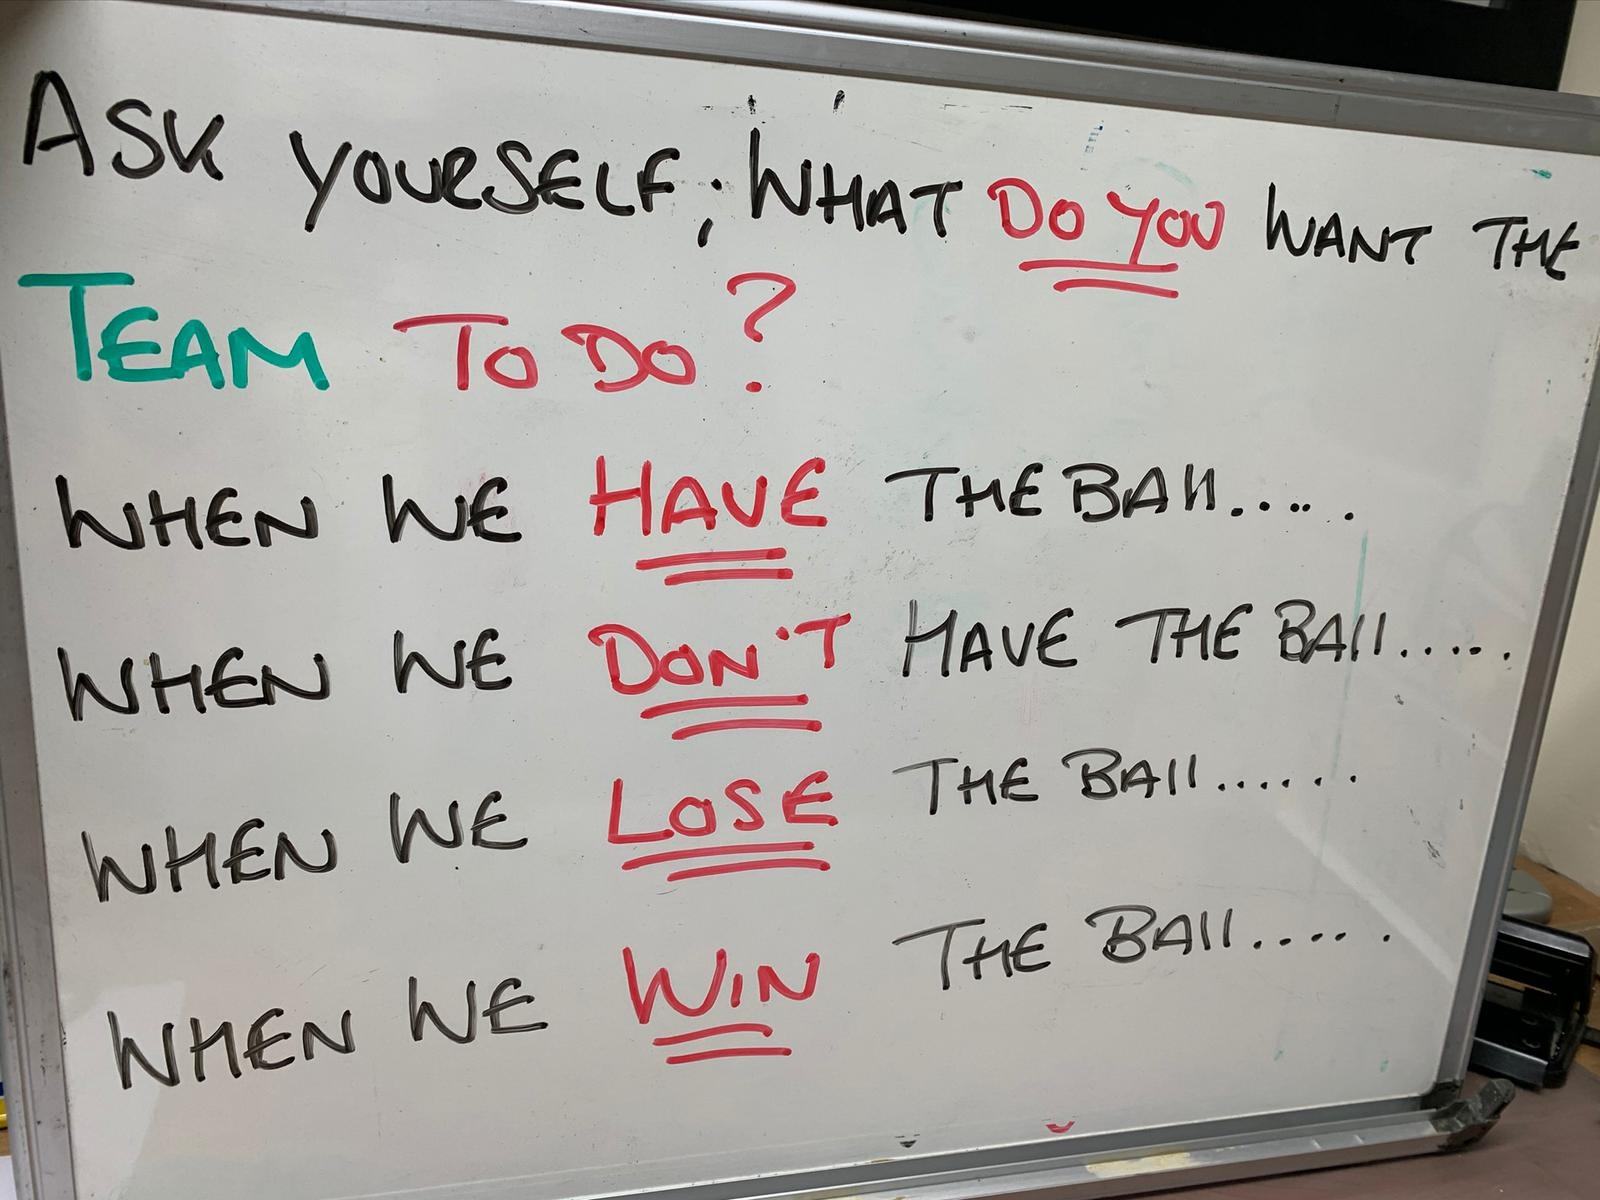 ASK YOURSELF; WHAT DO YOU WANT THE
TEAM TO DO?
WHEN WE HAVE THE BAll.....
WHEN WE DON'T HAVE THE BAll.....
WHEN WE LOSE THE BAll......
WHEN WE WIN THE BAll.....